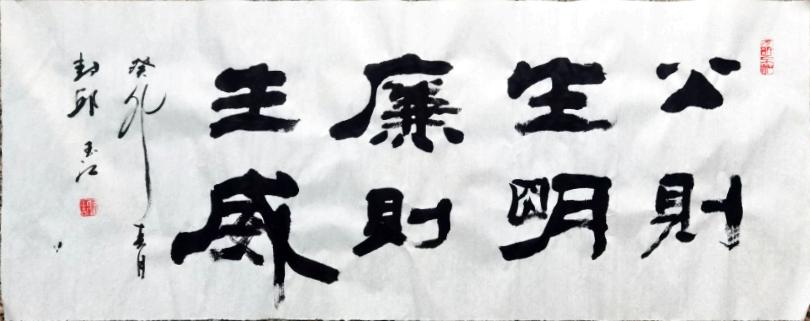 公則
生明
廉則
生威
癸卯春月
封邱玉江